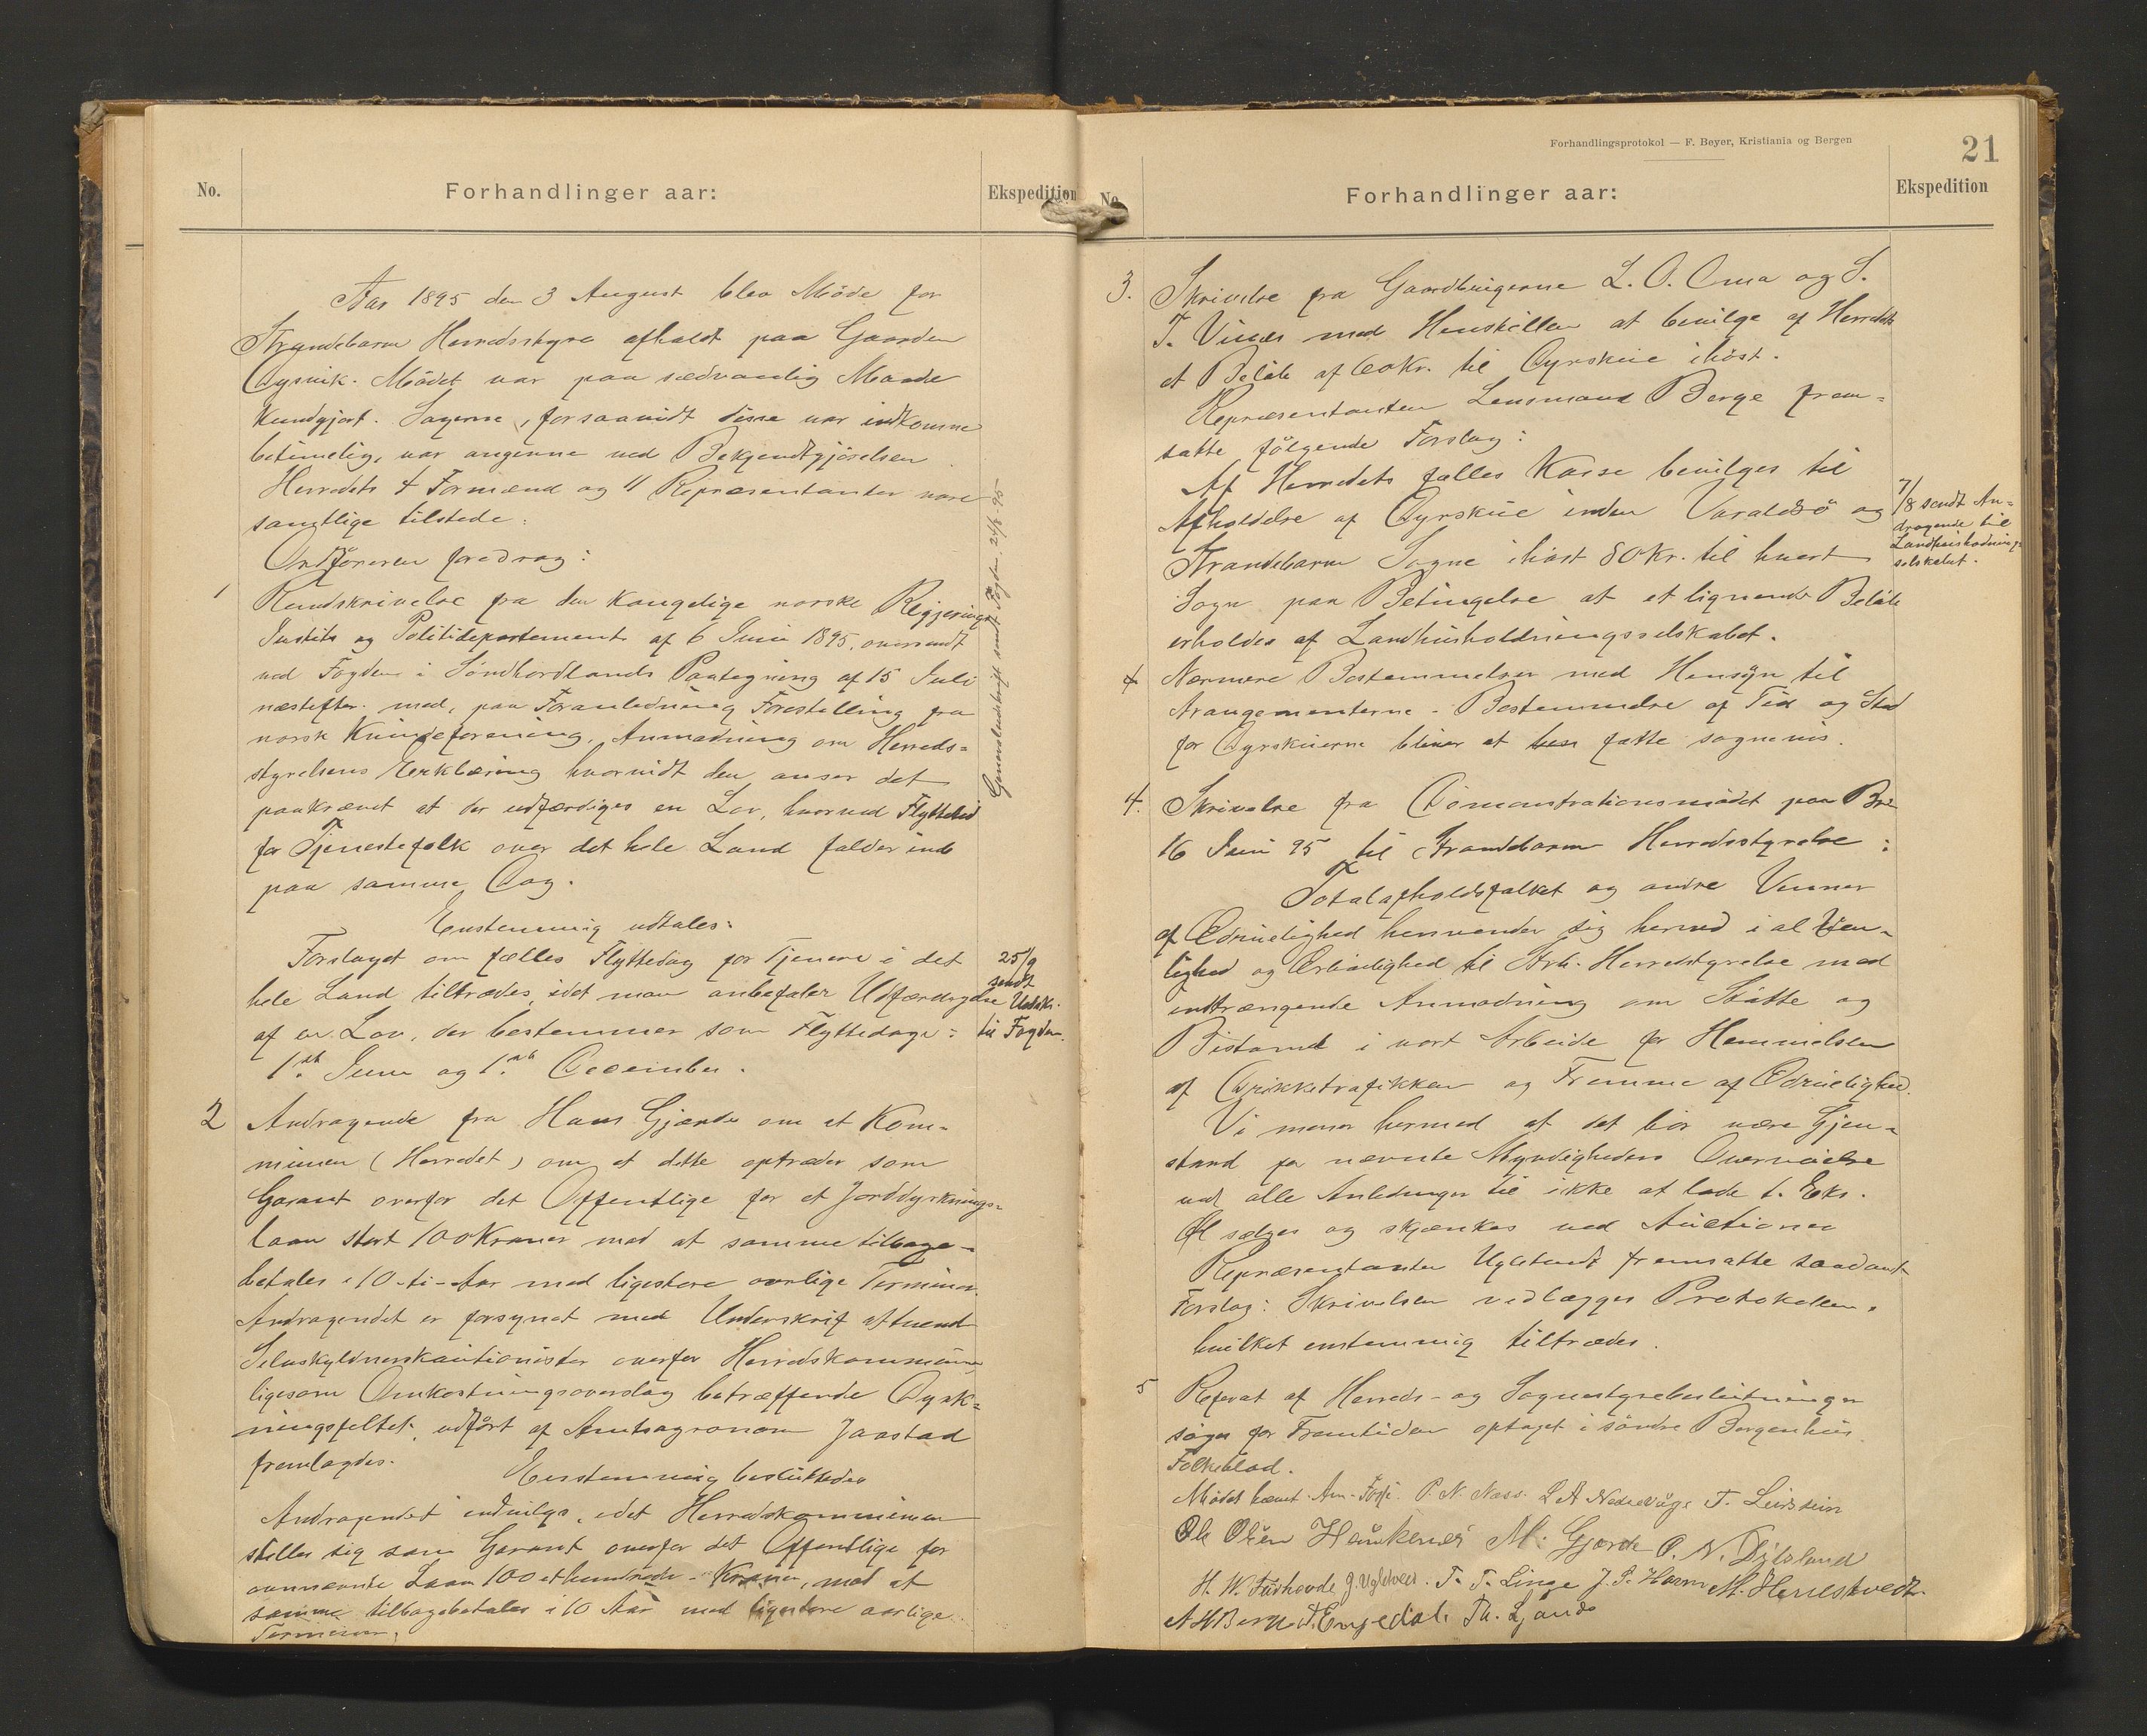 No.
Forhandlinger aar:
Ekspedition
Aar 1895 den 3 August blev Möde for
Strandebarm Herredsstyre afholdt paa Gaarden
Dysvik. Mödet var paa sædvanlig Maade
kundgjort. Sagerne, forsaavidt disse var indkomne
betimelig, var angivne ved Bekjendtgjörelsen.
Herredets 4 Formænd og 11 Repræsentanter vare
samtlige tilstede.
Ordföreren foredrog:
1 Rundskrivelse fra den kongelige norske Regjerings
Justits og Politidepartement af 6 Juni 1895, oversendt
ved Fogden i Söndhordlands Paategning af 15 Juli
næstefter. med, paa Foranledning Forestilling fra
norsk Kvindeforening, Anmodning om Herreds-
styrelsens Erklæring hvorvidt den anser det
paakrævet at der udfærdiges en Lov, hvorved Flyttetid
for Tjenestefolk over det hele Land falder ind
paa samme Dag.
Genoludskrift sendt Fogden 24/8 95
Enstemmig udtales:
Forslaget om fælles Flyttedag for Tjenere i det
hele Land tiltrædes, idet man anbefaler Udfærdigelse
af en Lov, der bestemmer som Flyttedage:
1ste Juni og 1ste December.
25/9
sendt
Udskr.
til Fogden.
2 Andragende fra Hans Gjærde om at Kom-
munen (Herredet) om at dette optræder som
Garant overfor det Offentlige for et Jorddyrknings-
laan stort 100 Kroner mod at samme tilbage-
betales i 10 -ti- Aar med ligestore aarlige Terminer.
Andragendet er forsynet med Underskrif af tvende
Selvskyldnerskautionister overfor Herredskommunen,
ligesom Omkostningsoverslag betræffende Dyrk-
ningsfeltet, udfört af Amtsagronom Jaastad
fremlagdes.
Enstemmig besluttedes
Andragendet indvilges, idet Herredskommunen
stiller sig som Garant overfor det Offentlige for
ovennævnte Laan 100 ethundrede - Kroner, mod at
samme tilbagebetales i 10 Aar med ligestore aarlige
Terminer.
Forhandlingsprotokol — F. Beyer, Kristiania og Bergen
21
No.
Forhandlinger aar:
Ekspedition
3. Skrivelse fra Gaardbrugerne L. O. Oma og S.
T. Vines med Henstillen at bevilge af Herredet
et Belöb af 60 Kr. til Dyrskue ihöst.
Repræsentanten Lensmand Berge frem-
satte fölgende Forslag:
Af Herredets fælles Kasse bevilges til
Afholdelse af Dyrskue inden Varaldsö og
Strandebarm Sogne ihöst 80 Kr. til hvert
Sogn paa Betingelse at et lignende Belöb
erholdes af Landhusholdningsselskabet.
7/8 sendt An-
dragende til
Landhusholdnings-
selskabet.
Nærmere Bestemmelser med Hensyn til
Arangementerne - Bestemmelse af Tid og Sted
for Dyrskuerne bliver at fatte sognevis.
4. Skrivelse fra Demonstrationsmödet paa Bre
16 Juni 95 til Strandebarm Herredsstyrelse:
Totalafholdsfolket og andre Venner
af Ædruelighed henvender sig herved i al Ven-
lighed og Ærbödighed til Strb. Herredstyrelse med
indtrængende Anmodning om Stötte og
Bistand i vort Arbeide for Hemmelsen
af Drikketrafikken og Fremme af Ædruelighed.
Vi mener hermed at det bör være Gjen-
stand for nævnte Myndigheders Overveielse
ved alle Anledninger til ikke at lade t. Eks.
Öl sælges og skjænkes ved Auctioner
Repræsentanten Ugletveit fremsatte saadant
Forslag: Skrivelsen vedlægges Protokollen.
hvilket enstemmig tiltrædes.
5 Referat af Herreds- og Sognestyrebeslutninger
söges for Fremtiden optaget i söndre Bergenhus
Folkeblad.
Mödet hævet. Am. Fosse. P. N. Næss. L A Nedrevåge T. Leidstein
Ole Olsen Haukenes M. Gjerde O. N. Dybsland
H. W. Fuskovde J. Ugletveit. T. T. Linge J. P. Haavn M. Herrestvedt
A H Berge T. Engedal. Th. Ljones